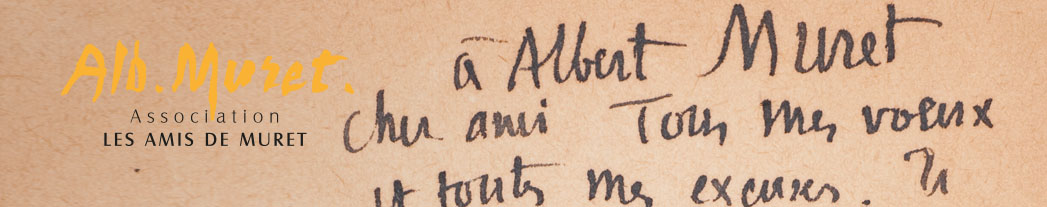 Alb. Muret.
Association
LES AMIS DE MURET
à Albert Muret
cher ami Tous mes voeux
et toutes mes excuses. Tu